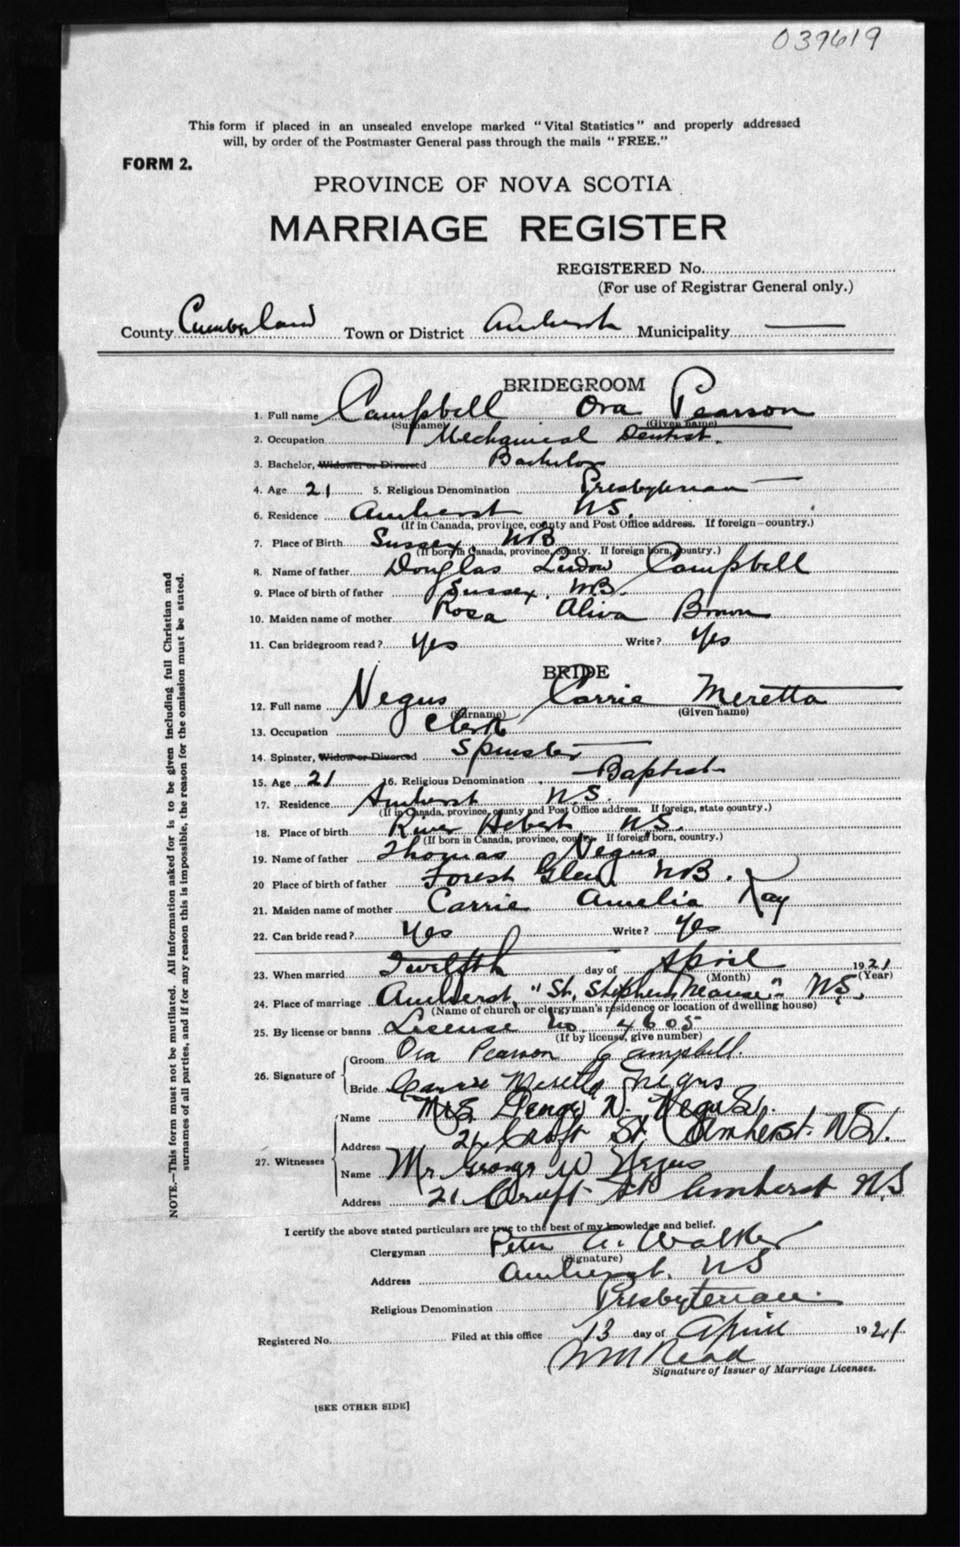 039619
This form if placed in an unsealed envelope marked "Vital Statistics" and properly addressed
will, by order of the Postmaster General pass through the mails "FREE."
FORM 2.
PROVINCE OF NOVA SCOTIA
MARRIAGE REGISTER
REGISTERED No.
(For use of Registrar General only.)
County Cumberland Town or District Amherst Municipality —
BRIDEGROOM
1. Full name Campbell Ora Pearson
(Surname) (Given name)
2. Occupation Mechanical Dentist.
3. Bachelor, Widower or Divorced Bachelor
4. Age 21 5. Religious Denomination Presbyterian
6. Residence Amherst N.S.
(If in Canada, province, county and Post Office address. If foreign—country.)
7. Place of Birth Sussex NB
(If born in Canada, province, county. If foreign born, country.)
8. Name of father Douglas Campbell
9. Place of birth of father Sussex. N.B.
10. Maiden name of mother Rosa Brown
11. Can bridegroom read? Yes Write? Yes
BRIDE
12. Full name Negus Carrie Meretta
(Surname) (Given name)
13. Occupation Clerk
14. Spinster, Widow or Divorced Spinster
15. Age 21 16. Religious Denomination Baptist
17. Residence Amherst N.S.
(If in Canada, province, county and Post Office address. If foreign, state country.)
18. Place of birth River Hebert N.S.
(If born in Canada, province, county. If foreign born, country.)
19. Name of father Thomas Negus
20 Place of birth of father Forest Glen N.B.
21. Maiden name of mother Carrie Amelia Kay
22. Can bride read? Yes Write? Yes
23. When married Twelfth day of April 1921
(Month) (Year)
24. Place of marriage Amherst, "St. Stephens Manse" N.S.
(Name of church or clergyman's residence or location of dwelling house)
25. By license or banns License No. 4605
(If by license, give number)
26. Signature of Groom Ora Pearson Campbell.
Bride Carrie Meretta Negus
27. Witnesses Name Mrs George N. Negus.
Address 21 Croft St. Amherst N.S.
Name Mr George W Negus
Address 21 Croft St Amherst N.S
I certify the above stated particulars are true to the best of my knowledge and belief.
Clergyman Peter A. Walker
(Signature)
Address Amherst, N.S
Religious Denomination Presbyterian.
Registered No. Filed at this office 13 day of April 1921
Signature of Issuer of Marriage Licenses.
[SEE OTHER SIDE]
NOTE.—This form must not be mutilated. All information asked for is to be given including full Christian and
surnames of all parties, and if for any reason this is impossible, the reason for the omission must be stated.